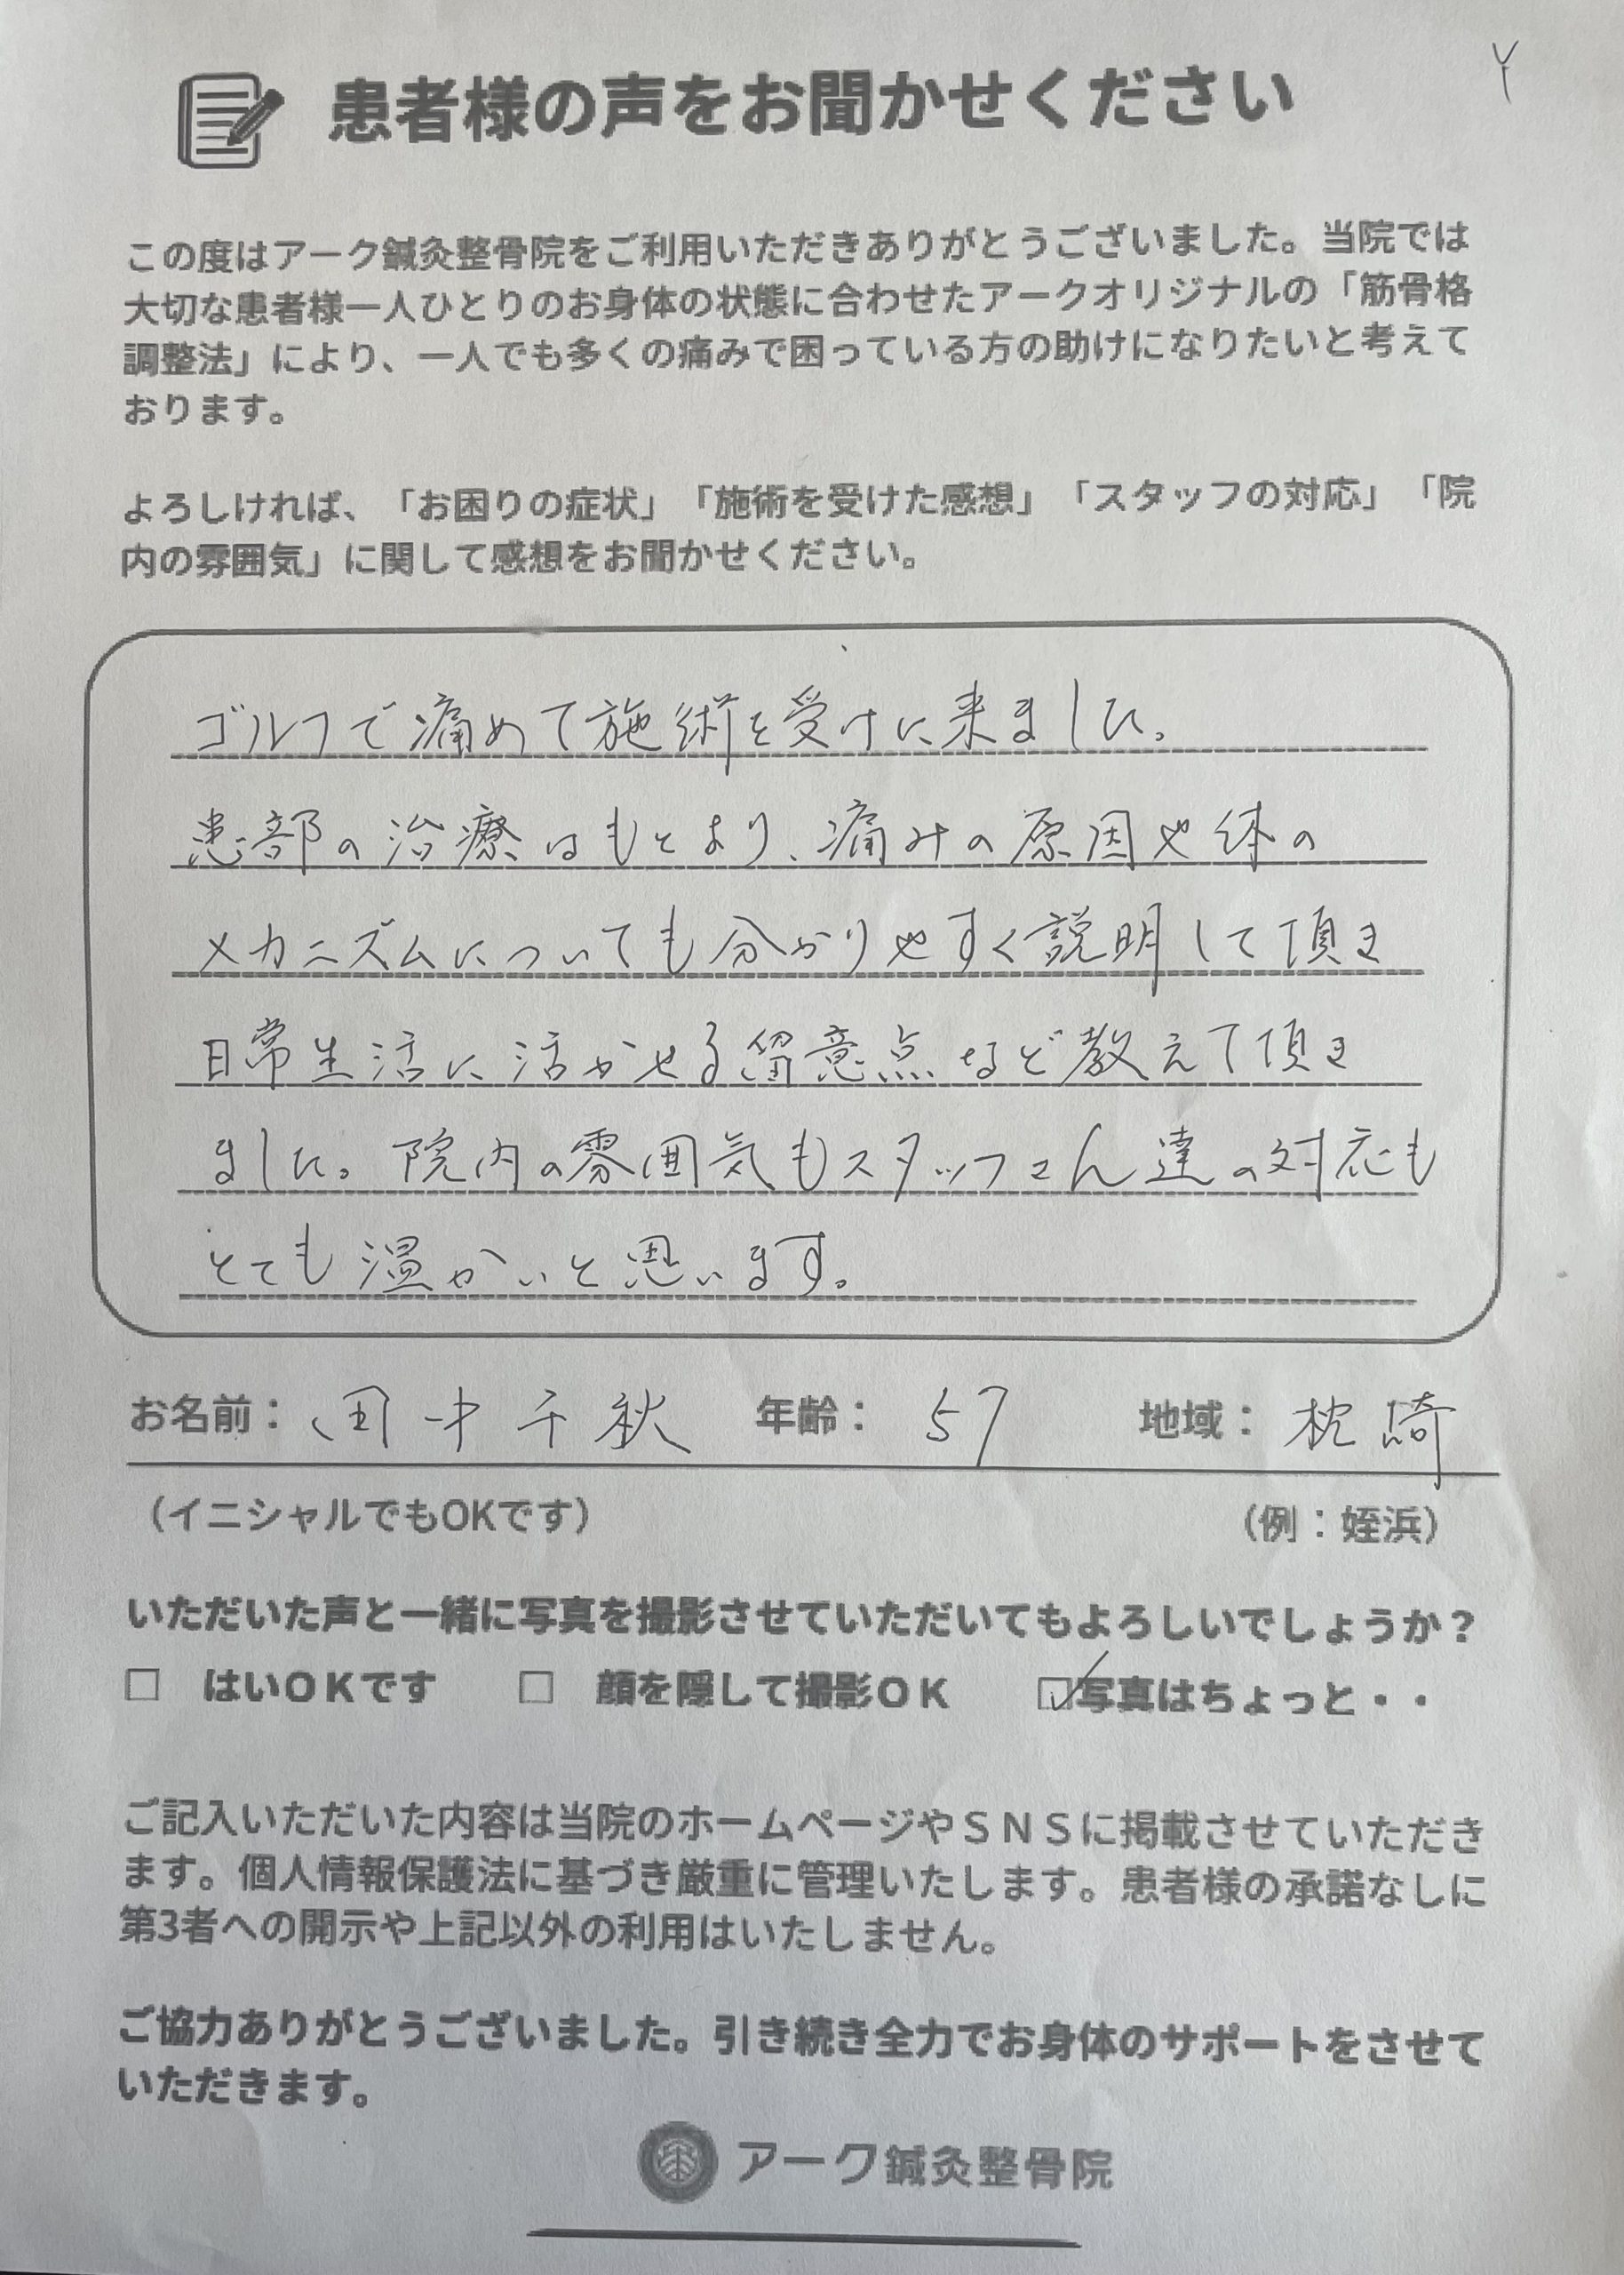 患者様の声をお聞かせください
この度はアーク鍼灸整骨院をご利用いただきありがとうございました。当院では
大切な患者様一人ひとりのお身体の状態に合わせたアークオリジナルの「筋骨格
調整法」により、一人でも多くの痛みで困っている方の助けになりたいと考えて
おります。
よろしければ、「お困りの症状」「施術を受けた感想」「スタッフの対応」「院
内の雰囲気」に関して感想をお聞かせください。
ゴルフで痛めて施術を受けに来ました。
患部の治療はもとより、痛みの原因や体の
メカニズムについても分かりやすく説明して頂き
日常生活に活かせる留意点など教えて頂き
ました。院内の雰囲気もスタッフさん達の対応も
とても温かいと思います。
お名前： 田中千秋 年齢： 57 地域： 枕崎
（イニシャルでもOKです） （例：姪浜）
いただいた声と一緒に写真を撮影させていただいてもよろしいでしょうか？
□ はいＯＫです □ 顔を隠して撮影ＯＫ ☑写真はちょっと・・
ご記入いただいた内容は当院のホームページやＳＮＳに掲載させていただき
ます。個人情報保護法に基づき厳重に管理いたします。患者様の承諾なしに
第3者への開示や上記以外の利用はいたしません。
ご協力ありがとうございました。引き続き全力でお身体のサポートをさせて
いただきます。
アーク鍼灸整骨院